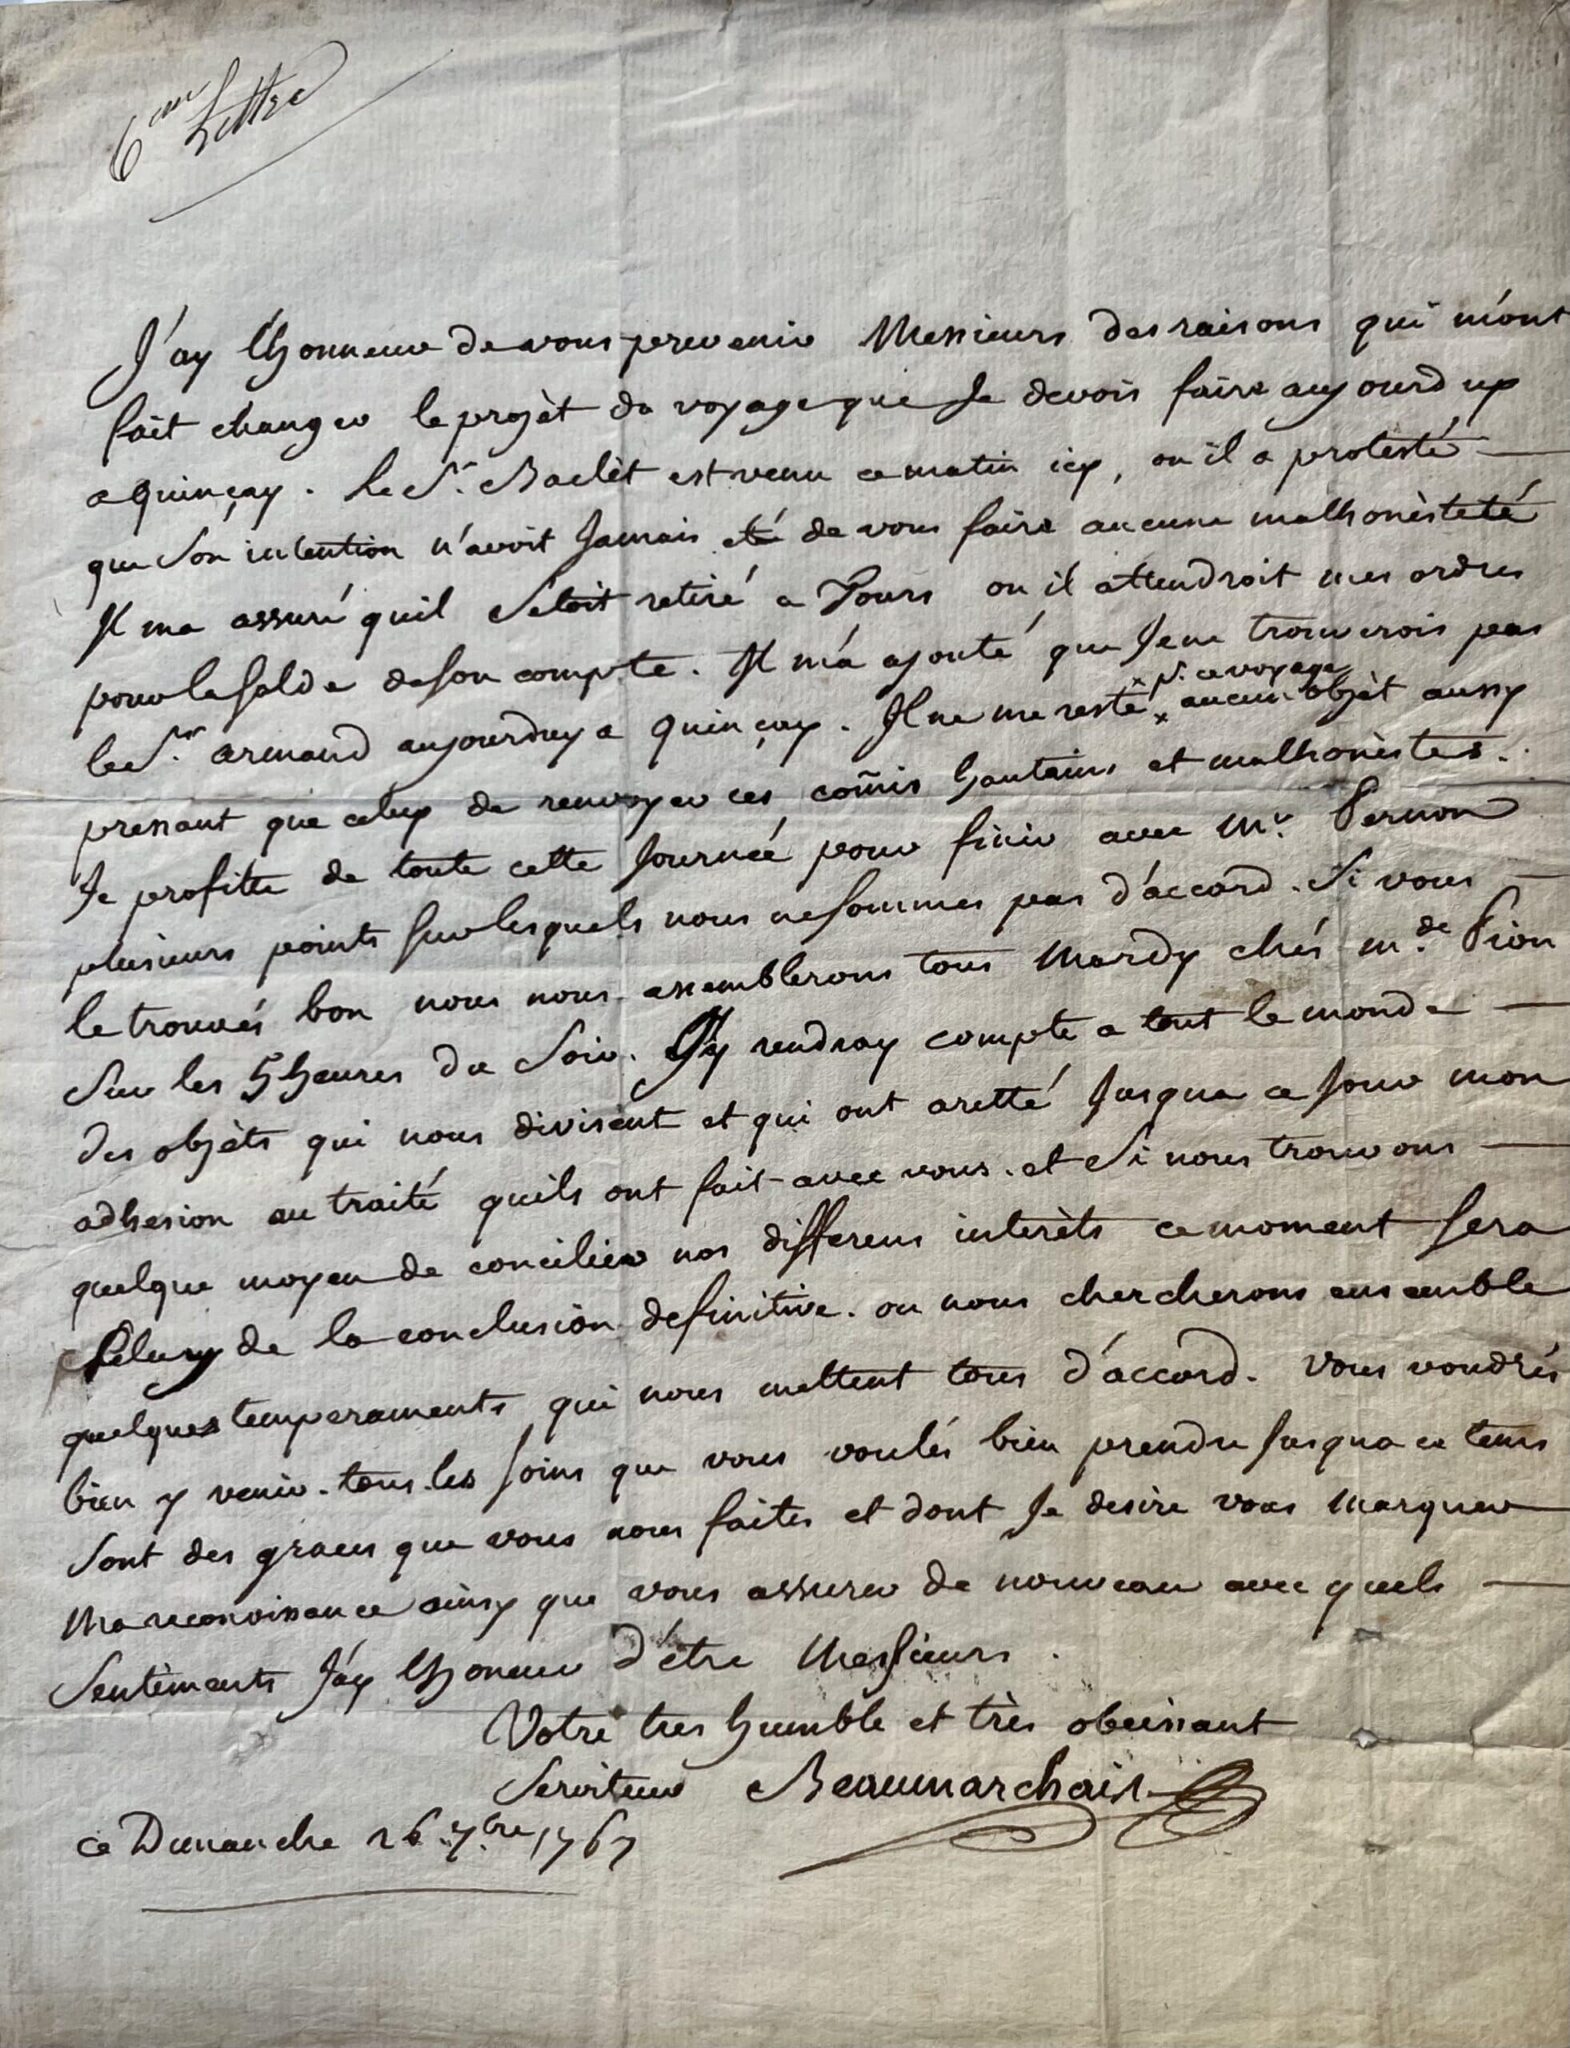 6eme Lettre
J'ay l'honneur de vous prevenir Messieurs des raisons qui m'ont
fait changer le projèt du voyage que Je devois faire aujourd'uy
a Quinçay. Le Sr. Baclèt est venu ce matin icy, ou il a protesté
que Son intention n'avoit Jamais eté de vous faire aucune malhonèsteté
Il ma assuré quil S'etoit retiré a Tours ou il attendroit mes ordres
pour le Solde de son compte. Il m'a ajouté que Je ne trouverois pas
le Sr. armand aujourduy a Quinçay. Il ne me reste × pr. ce voyage × aucun objèt aussy
pressant que celuy de renvoyer ces com̃is hautains et malhonèstes.
Je profitte de toute cette Journéé pour finir avec Mr. Pernon
plusieurs points Sur lesquels nous ne Sommes pas d'accord. Si vous
le trouvés bon nous nous assemblerons tous Mardy chés Mde. Pion
Sur les 5 heures du Soir. J'y rendray compte a tout le monde
des objèts qui nous divisent et qui ont aretté Jusqua ce Jour mon
adhesion au traité quils ont fait avec vous. et Si nous trouvons
quelque moyen de concilier nos differens interèts ce moment Sera
Celuy de la conclusion definitive. ou nous chercherons ensemble
quelques temperaments qui nous mettent tous d'accord. Vous voudrés
bien y venir. tous les Soins que vous voulés bien prendre Jusqua ce tems
Sont des graces que vous nous faites et dont Je desire vous Marquer
Ma reconoissance ainsy que vous assurer de nouveau avec quels
Sentiments J'ay l'honeur d'être Messieurs.
Votre tres humble et très obeissant
Serviteur Beaumarchais
ce Dimanche 26 7bre. 1767